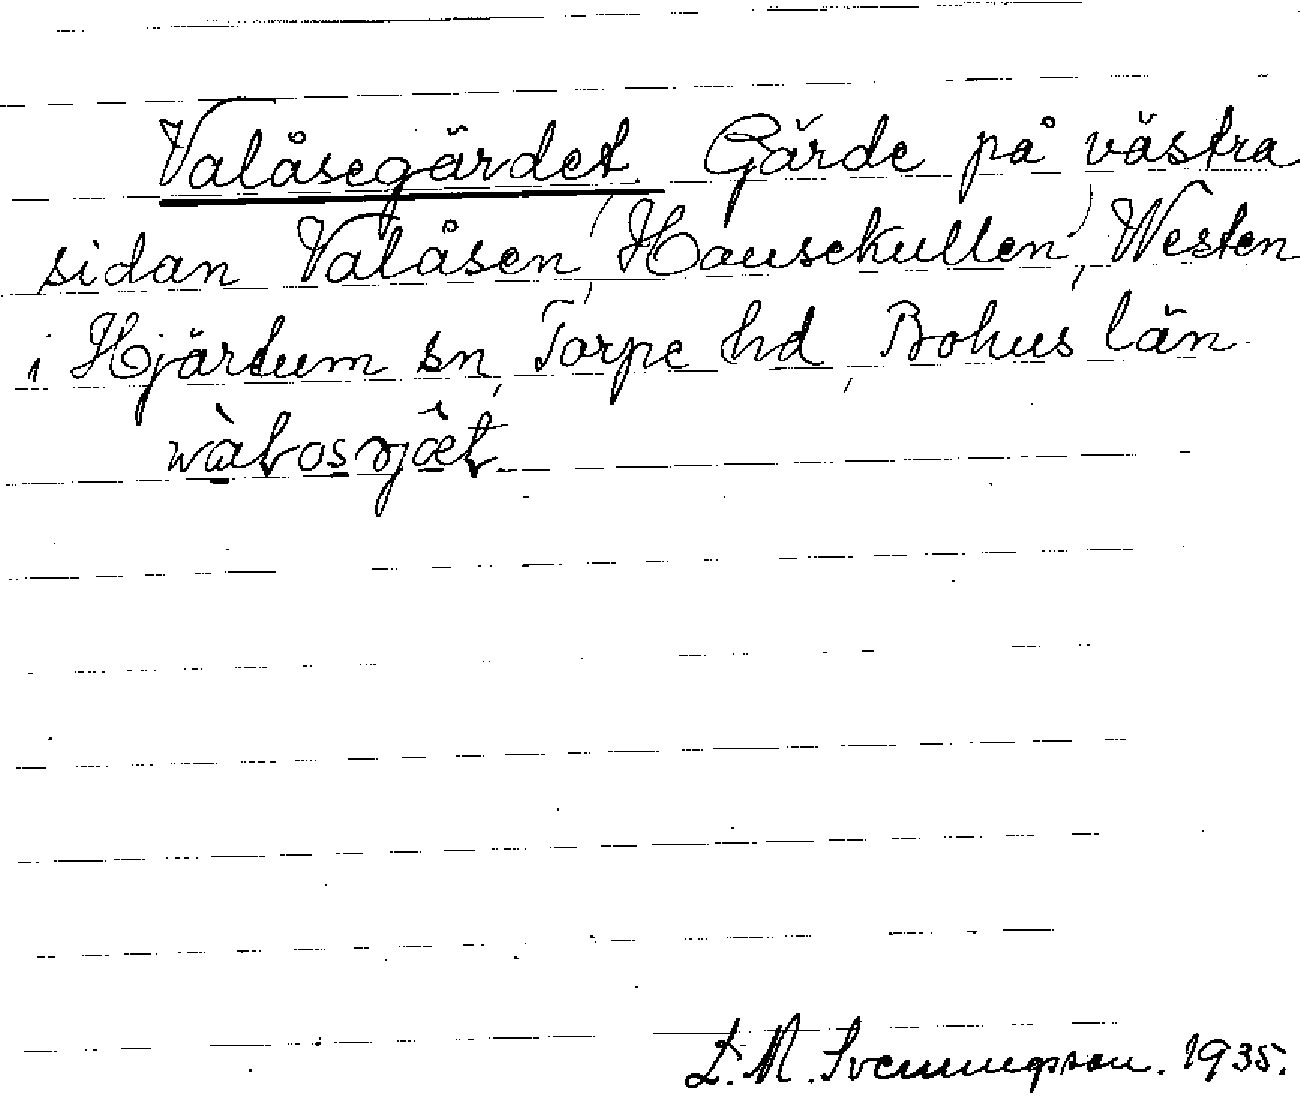 Valåsegärdet. Gärde på västra
sidan Valåsen (Hausekullen), Westen
i Hjärtum sn, Torpe hd, Bohus län
L. M. Svenningson. 1935.